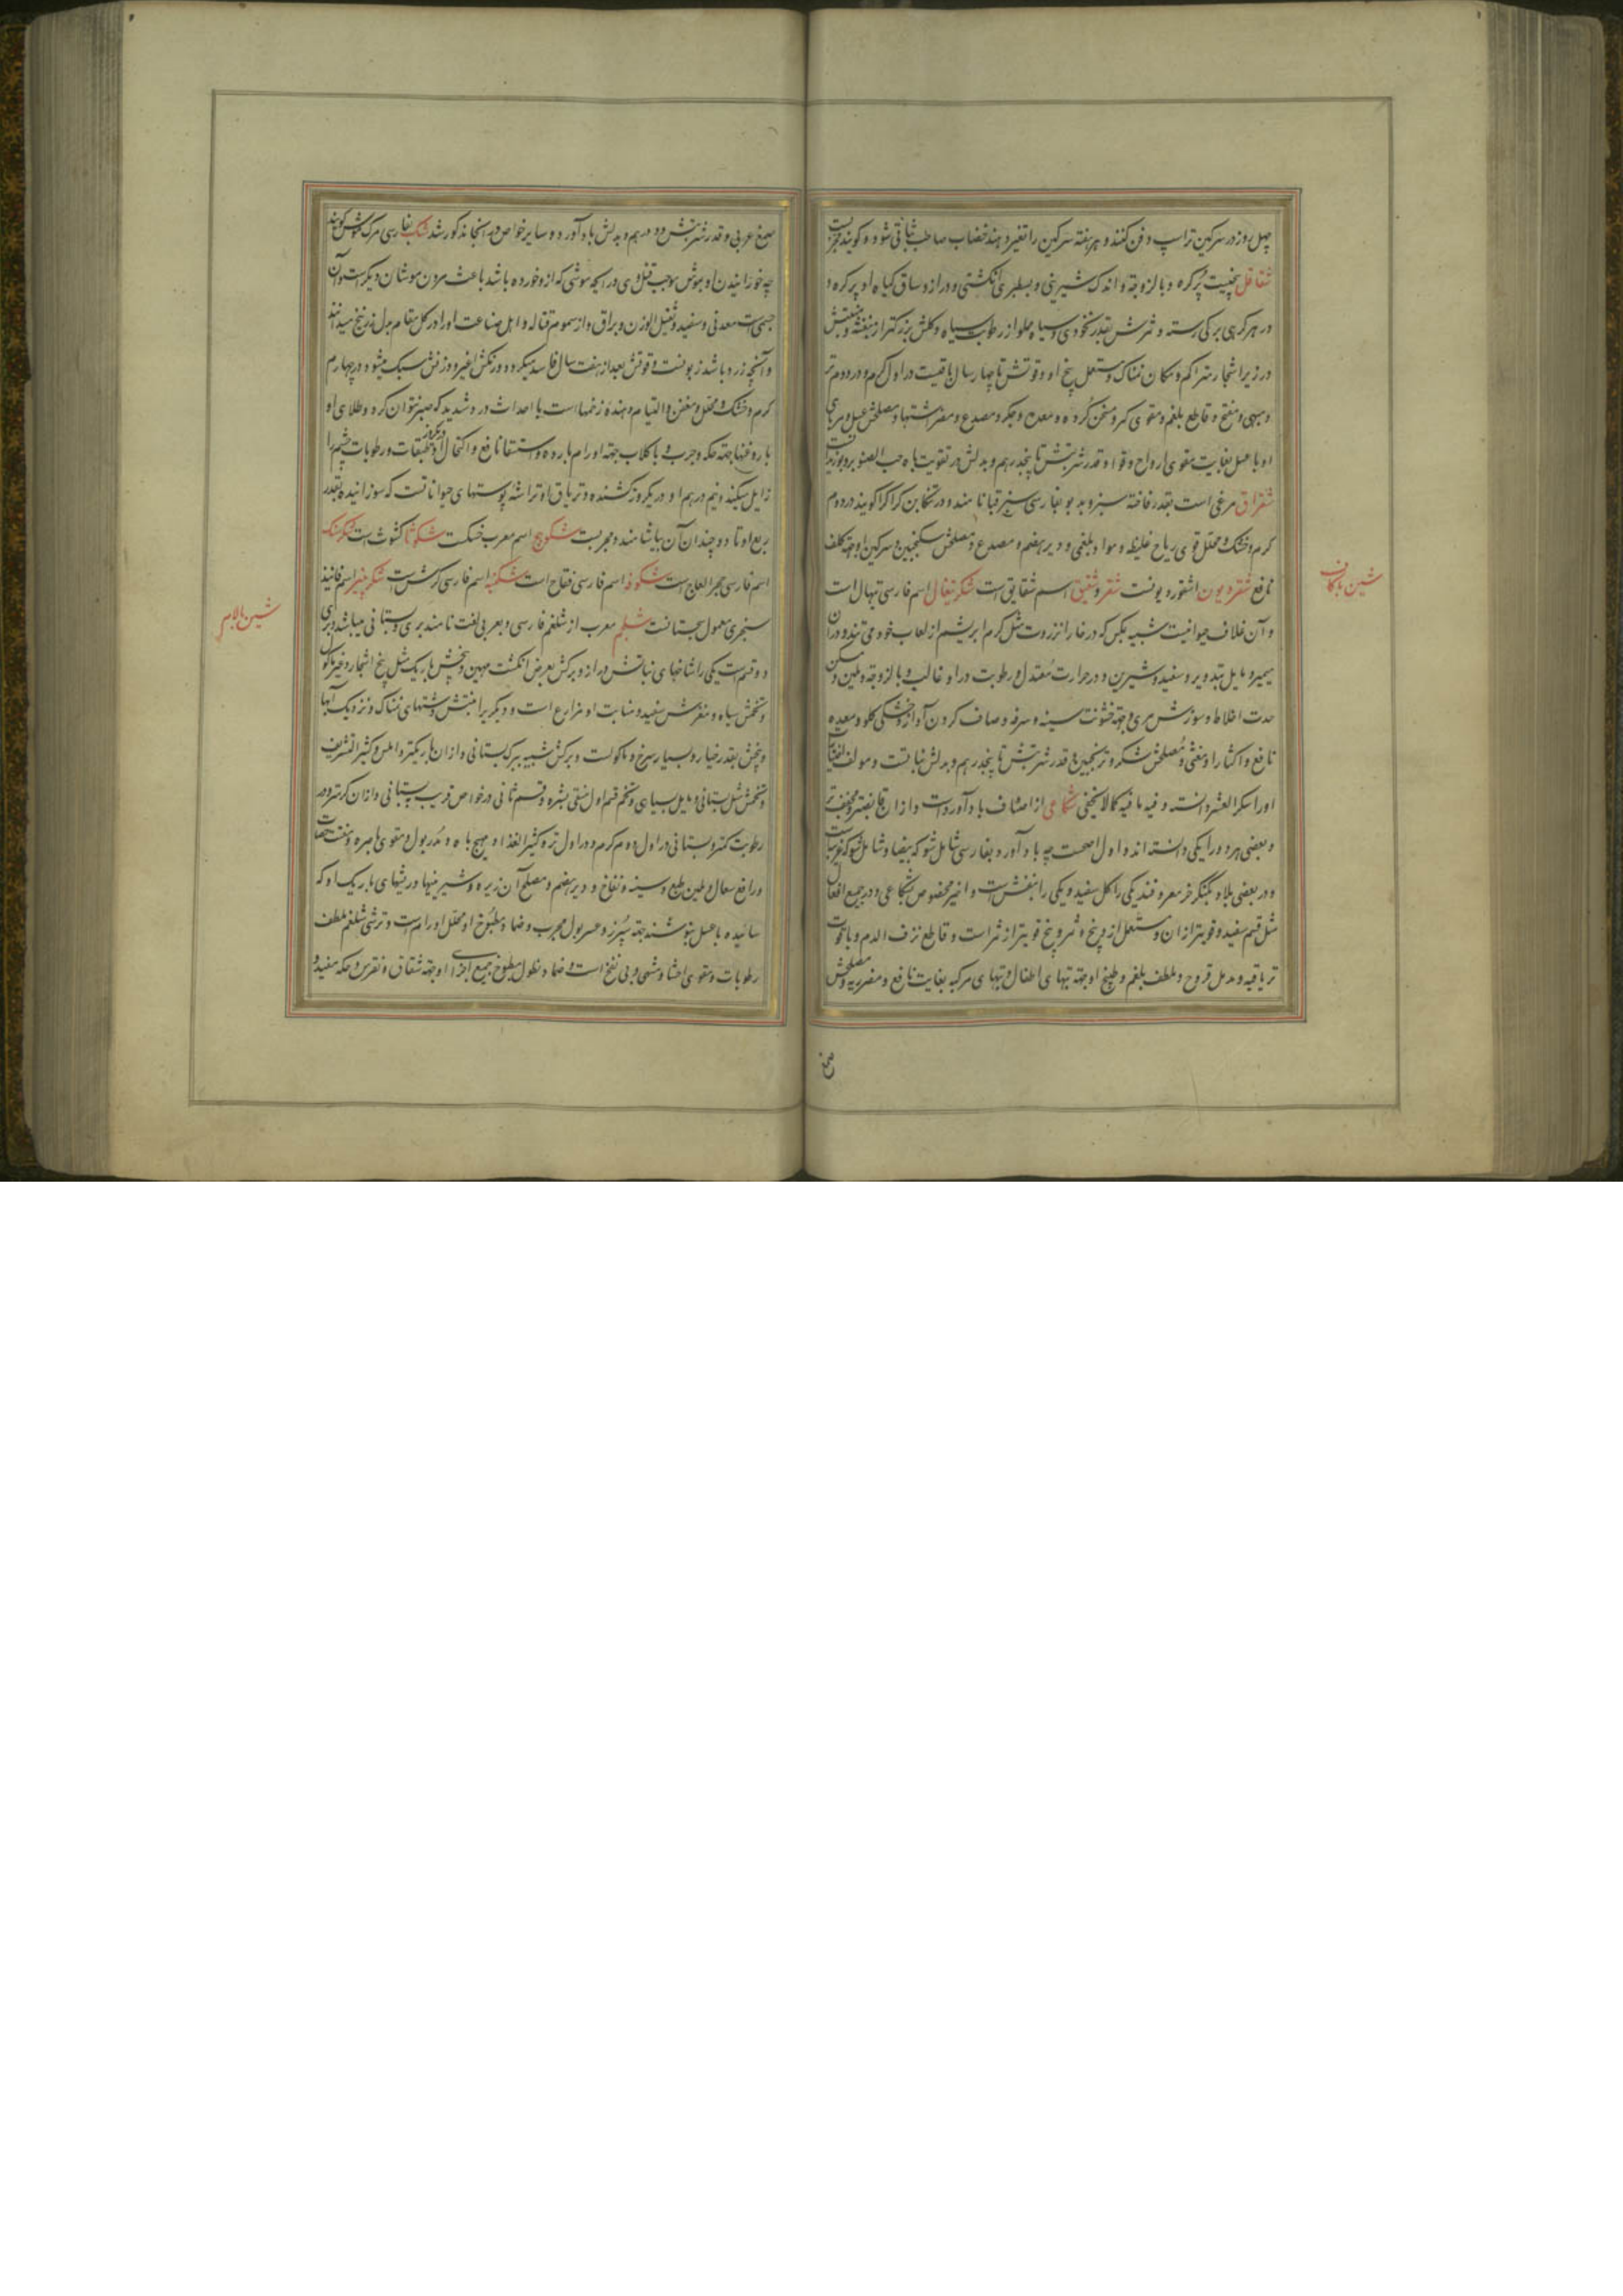 چهل روز در سرکین تر اسپ دفن کنند و هر هفته سرکین را تغیر دهند خضاب صاحب ثباتی شود و کویند مجربست
شقاقل بیخیست پر کره و با لزوجة و اندک شیرینی و بسطبری انکشتی و دراز و ساق کیاه او پر کره و
در هر کرهی برکی رسته و ثمرش بقدر نخودی و سیاه و مملو از رطوبت سیاه و کلش بزرکتر از بنفشه و منبتش
در زیر اشجار متراکم و مکان نمناک و مستعمل بیخ او و قوتش تا چهار سال باقیست در اول کرم و در دوم تر
و مبهی و مفتح و قاطع بلغم و مقوی کمر و مسخن کرده و معده و جکر و مصدع و مضر اشتها و مصلحش عسل و مربای
او با عسل بغایت مقوی ارواح و قوا و قدر شربتش تا پنجدرهم و بدلش در تقویت باه حب الصنوبر و بوزیدانست
شقراق مرغی است بقدر فاخته سبز و بدبو بفارسی سبز قبا نامند و در تنکابن کراکرا کویند در دوم
کرم و خشک و محلل قوی ریاح غلیظ و مواد بلغمی و دیرهضم و مصدع و مصلحش سکنجبین و سرکین او جهة کلف
نافع شقردیون اشقوردیونست شقر و شقیق اسم شقایق است شکر تیغال اسم فارسی تیهال است
و آن غلاف حیوانیست شبیه بمکس که در خار انزروت مثل کرم ابریشم از لعاب خود می تند و در آن
میمیرد مایل بتدویر و سفید و شیرین و در حرارت معتدل و رطوبت در او غالب و با لزوجة و ملین و مسکن
حدت اخلاط و سوزش مری و جهة خشونت سینه و سرفه و صاف کردن آواز و خشکی کلو و معده
نافع و اکثار او مغثی و مصلحش شکر و ترنجبین و قدر شربتش تا پنجدرهم و بدلش نباتست و مولف اختیارات
او را سکر العشر دانسته و فیه ما فیه کما لایخفی شکاعی از اصناف باد آورد است و از آن قابضتر و مجفف تر
و بعضی هر دو را یکی دانسته اند و اول اصحست چه باد آورد بفارسی شامل شوکه بیضا و شامل شوکه عربیه است
و در بعضی بلاد بکنکر خر معروفند یکی را کل سفید و یکی را بنفش است و اخیر مخصوص بشکاعی و در جمیع افعال
مثل قسم سفید و قویتر از آن و مستعمل از و بیخ و ثمر و بیخ قویتر از ثمر است و قاطع نزف الدم و با قوت
تریاقیه و مدمل قروح و ملطف بلغم و طبیخ او جهة تبهای اطفال و تبهای مرکبه بغایت نافع و مضر ریه و مصلحش
شین با کاف
صمغ عربی و قدر شربتش دو درهم و بدلش باد آورد و سایر خواص در انجا مذکور شد شک بفارسی مرک موش کویند
چه خورانیدن او بموش موجب قتل وی در آنچه موشی که از و خورده باشد باعث مردن موشان دیکر است و آن
جسمی است معدنی و سفید و ثقیل الوزن و براق و از سموم قتاله و اهل صناعت او را در کل مقام بدل زرنیخ میدانند
و آنچه زرد باشد زبونست و قوتش بعد از هفت سال فاسد میکردد و رنکش اغبر و وزنش سبک میشود در چهارم
کرم و خشک و محلل و معفن و التیام دهنده زخمها است با احداث درد شدید که صبر نتوان کرد و طلای او
با روغنها جهة حکه و جرب و با کلاب جهة اورام بارده و استسقا نافع و اکتحال او طبقات و رطوبات چشم را
زایل میکند و نیم درهم او در یکروز کشنده و تریاق او تراشه پوستهای حیواناتست که سوزانیده بقدر
ربع او تا دو چندان آن بیاشامند و مجربست شکوهج اسم معرب خسکست شکوثا کشوث است شکرسنک
اسم فارسی حجر العاج است شکوفه اسم فارسی فقاح است شکنبه اسم فارسی کرش است شکر پنیر اسم فانیذ
سنجری معمول سجستانست شلجم معرب از شلغم فارسی و بعربی لفت نامند بری و بستانی میباشد و بری
دو قسم است یکی را شاخهای نباتش دراز و برکش بعرض انکشت مهین و بیخش باریک مثل بیخ اشجار و غیر ماکول
و تخمش سیاه و مغزش سفید و منابت او مزارع است و دیکر را منبتش دشتهای نمناک و نزدیک آبها
و بیخش بقدر خیار و بسیار سرخ و ماکولست و برکش شبیه ببرک بستانی و از آن باریکتر و املس و کثیر التشریف
و تخمش مثل بستانی و مایل بسیاهی و تخم قسم اول منقی بشره و قسم ثانی در خواص قریب ببستانی و از آن کرمتر و در
رطوبت کمتر و بستانی در اول دوم کرم و در اول تر و کثیر الغذا و مهیج باه و مدر بول و مقوی باصره و مفتت حصاة
و رافع سعال و ملین طبع و سینه و نفاخ و دیرهضم و مصلح آن زیره و شیرینیها و ریشهای باریک او که
سائیده با عسل بنوشند جهة سپرز و عسر بول مجرب و ضماد مطبوخ او محلل اورام است و ترشی شلغم ملطف
رطوبات و مقوی احشا و مشهی و بی نفخ است و ضماد و نطول مطبوخ جمیع اجزای او جهة شقاق و نقرس و حکه مفید و
شین با لام